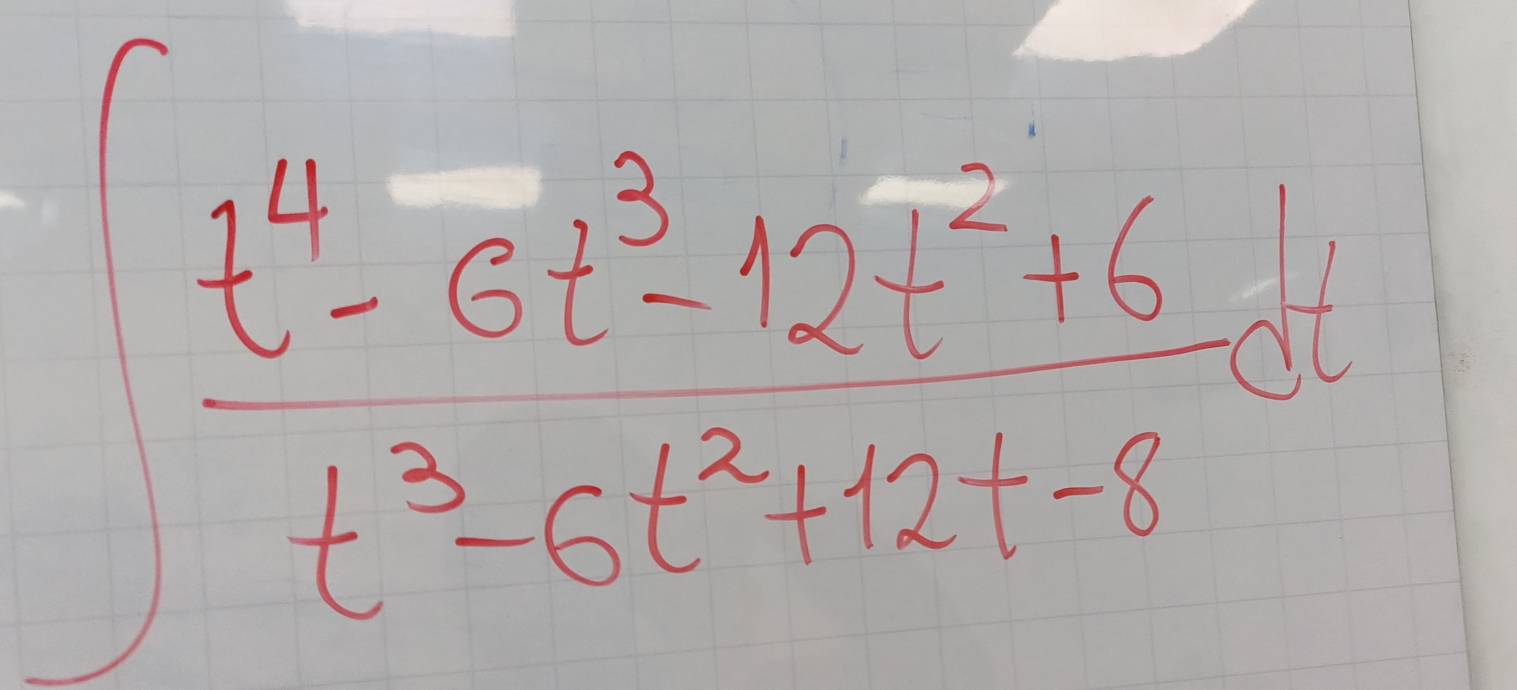 ∫ (t⁴ - 6t³ - 12t² + 6) / (t³ - 6t² + 12t - 8) dt